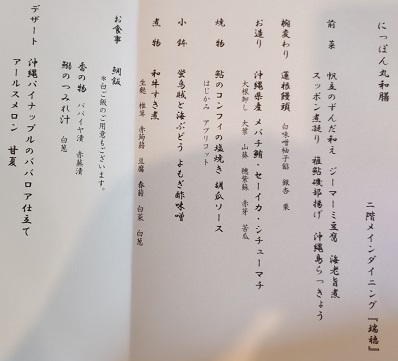 にっぽん丸和膳
二階メインダイニング『瑞穂』
前菜 帆立のずんだ和え ジーマーミ豆腐 海老旨煮
スッポン煮凝り 稚鮎磯部揚げ 沖縄島らっきょう
椀変わり 蓮根饅頭 白味噌柚子餡 銀杏 栗
お造り 沖縄県産 メバチ鮪・セーイカ・シチューマチ
大根卸し 大葉 山葵 穂紫蘇 赤芽 苦瓜
焼物 鮎のコンフィの塩焼き 胡瓜ソース
はじかみ アプリコット
小鉢 蛍烏賊と海ぶどう よもぎ酢味噌
煮物 和牛すき煮
生麩 椎茸 赤蒟蒻 豆腐 春菊 白菜 白葱
お食事 鯛飯
*白ご飯のご用意もございます。
香の物 パパイヤ漬 赤蕪漬
鰯のつみれ汁 白葱
デザート 沖縄パイナップルのババロア仕立て
アールスメロン 甘夏